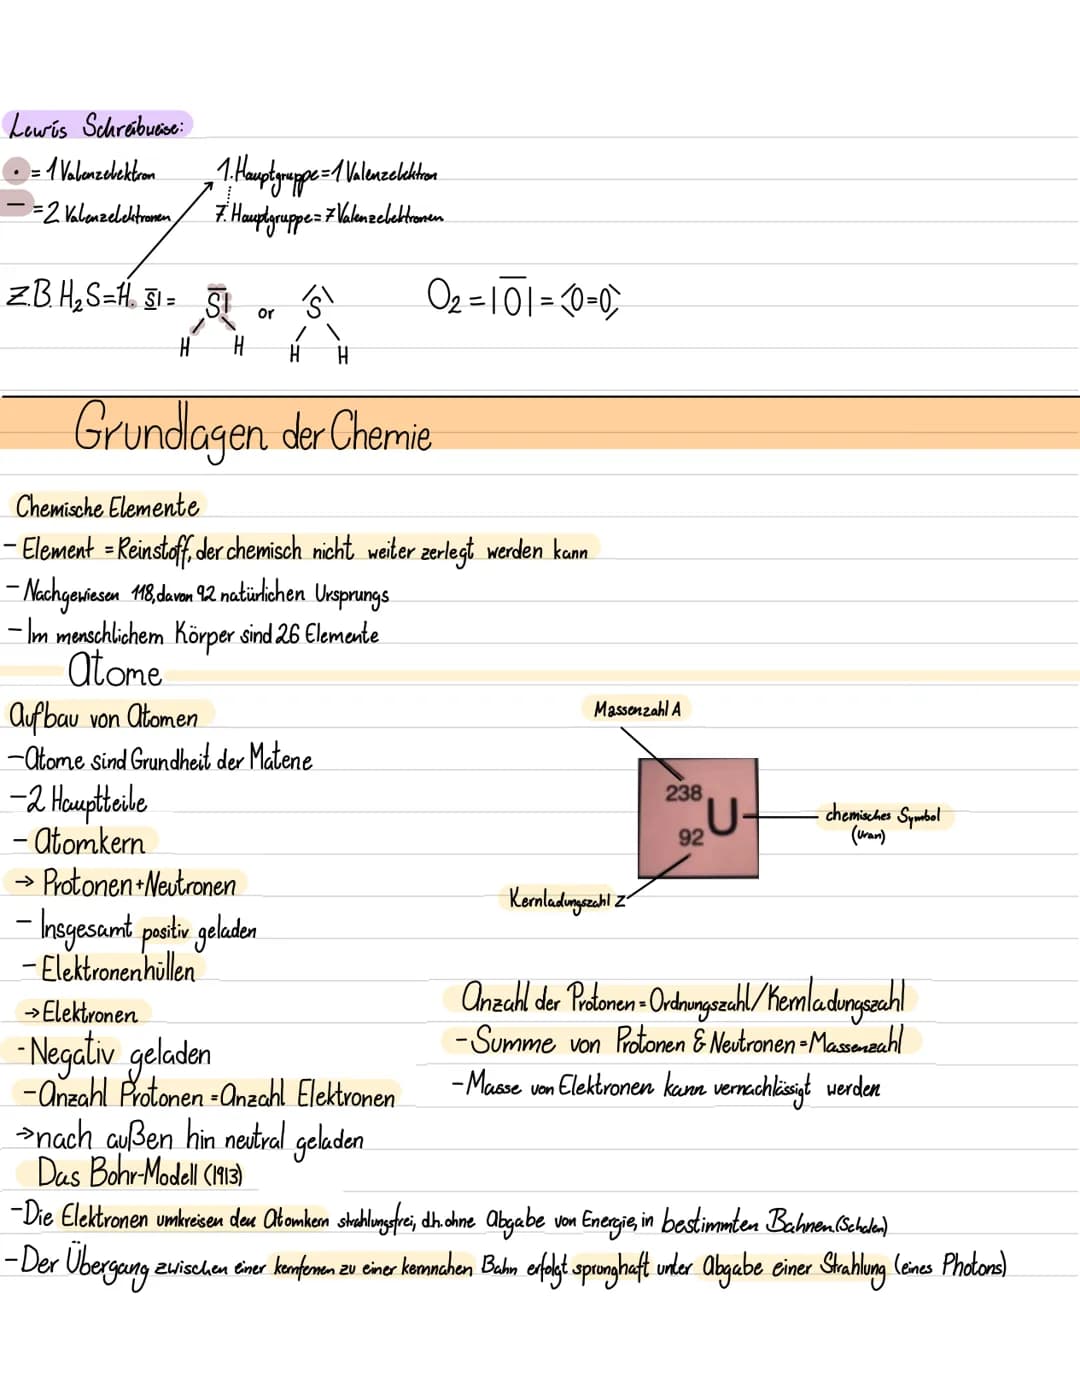 Lewis Schreibweise:
• = 1 Valenzelektron
1. Hauptgruppe = 1 Valenzelektron
— = 2 Valenzelektronen
7. Hauptgruppe = 7 Valenzelektronen
Z.B. H₂S = H. S| = S| or S
H H H H
O₂ = |O| = <O=O>
Grundlagen der Chemie
Chemische Elemente
- Element = Reinstoff, der chemisch nicht weiter zerlegt werden kann
- Nachgewiesen 118, davon 92 natürlichen Ursprungs
- Im menschlichem Körper sind 26 Elemente
Atome
Aufbau von Atomen
- Atome sind Grundheit der Materie
- 2 Hauptteile
- Atomkern
→ Protonen + Neutronen
- Insgesamt positiv geladen
- Elektronenhüllen
→ Elektronen
- Negativ geladen
- Anzahl Protonen = Anzahl Elektronen
→ nach außen hin neutral geladen
Massenzahl A
238
U
92
chemisches Symbol
(Uran)
Kernladungszahl Z
Anzahl der Protonen = Ordnungszahl/Kernladungszahl
- Summe von Protonen & Neutronen = Massenzahl
- Masse von Elektronen kann vernachlässigt werden
Das Bohr-Modell (1913)
- Die Elektronen umkreisen den Atomkern strahlungsfrei, d.h. ohne Abgabe von Energie, in bestimmten Bahnen (Schalen)
- Der Übergang zwischen einer kernfernen zu einer kernnahen Bahn erfolgt sprunghaft unter Abgabe einer Strahlung (eines Photons)